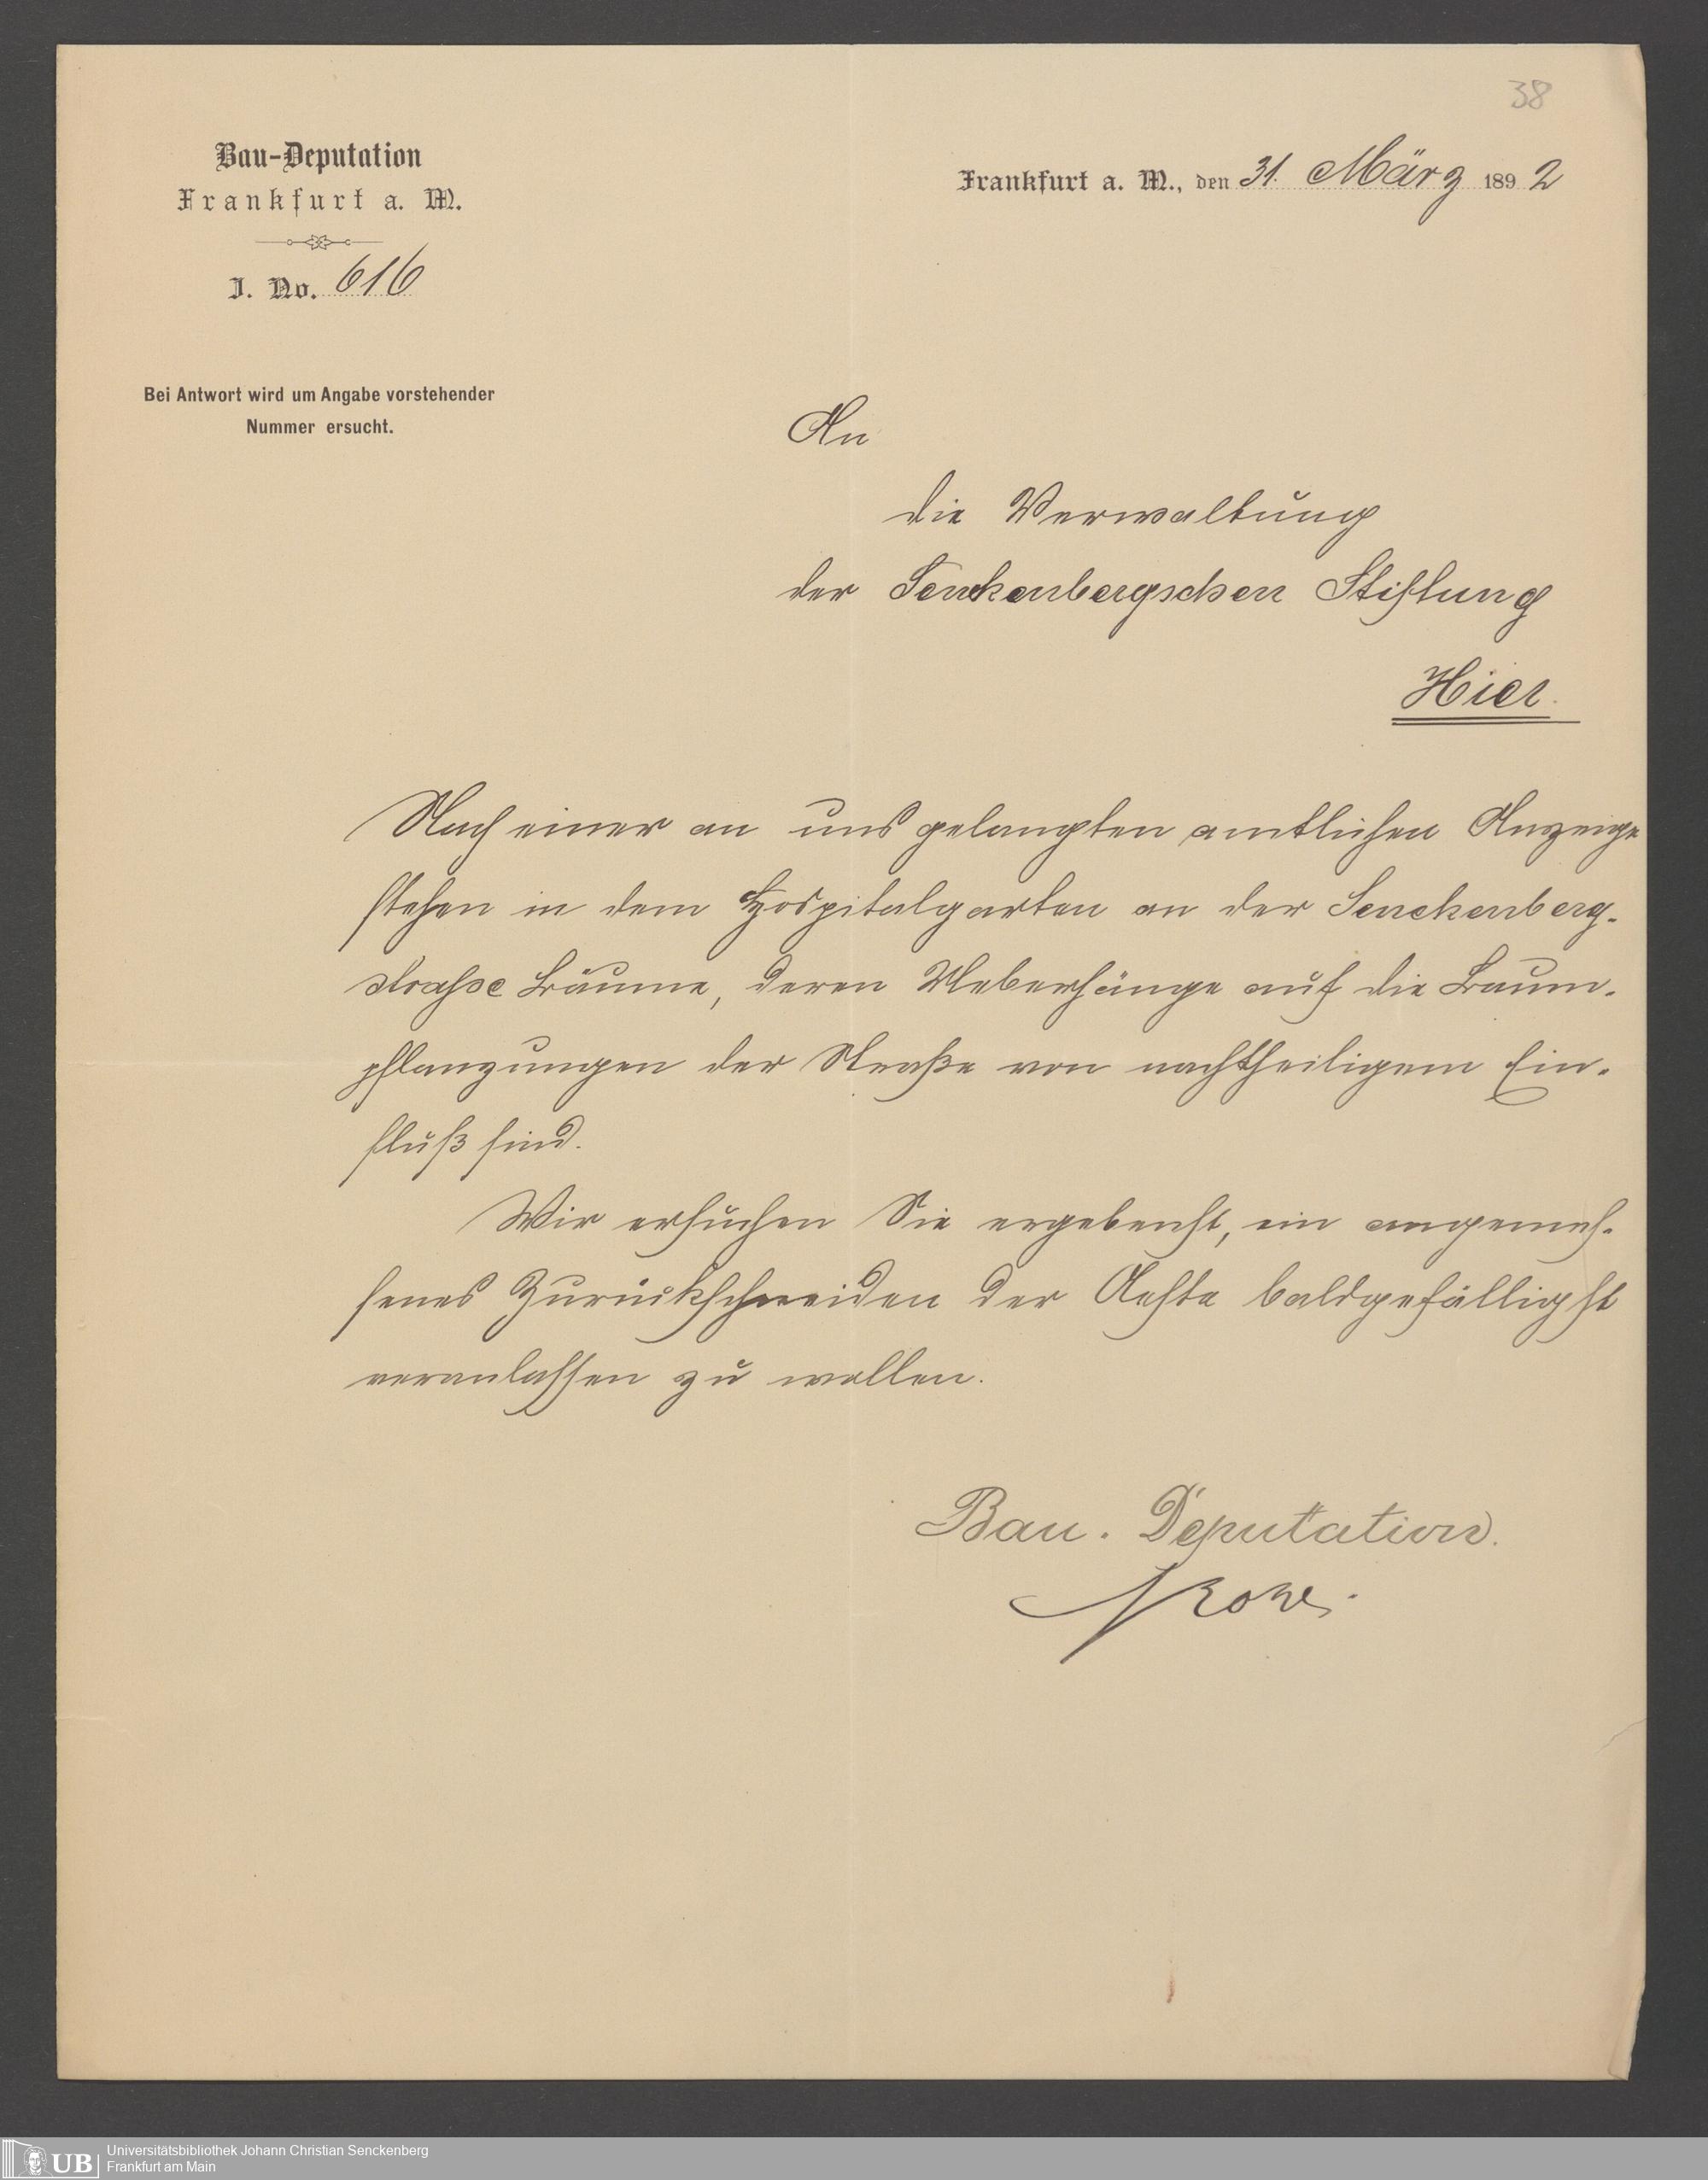 38
Bau-Deputation
Frankfurt a. M.
J. No. 616
Bei Antwort wird um Angabe vorstehender
Nummer ersucht.
Frankfurt a. M., den 31. März 1892
An
die Verwaltung
der Senckenbergschen Stiftung
Hier.
Nach einer an uns gelangten amtlichen Anzeige
stehen in dem Hospitalgarten an der Senckenberg-
strasse Bäume, deren Ueberhänge auf die Baum-
pflanzungen der Straße von nachtheiligem Ein-
fluß sind.
Wir ersuchen Sie ergebenst, ein angemes-
senes Zurückschneiden der Aeste baldgefälligst
veranlassen zu wollen.
Bau-Deputation.
UB
Universitätsbibliothek Johann Christian Senckenberg
Frankfurt am Main